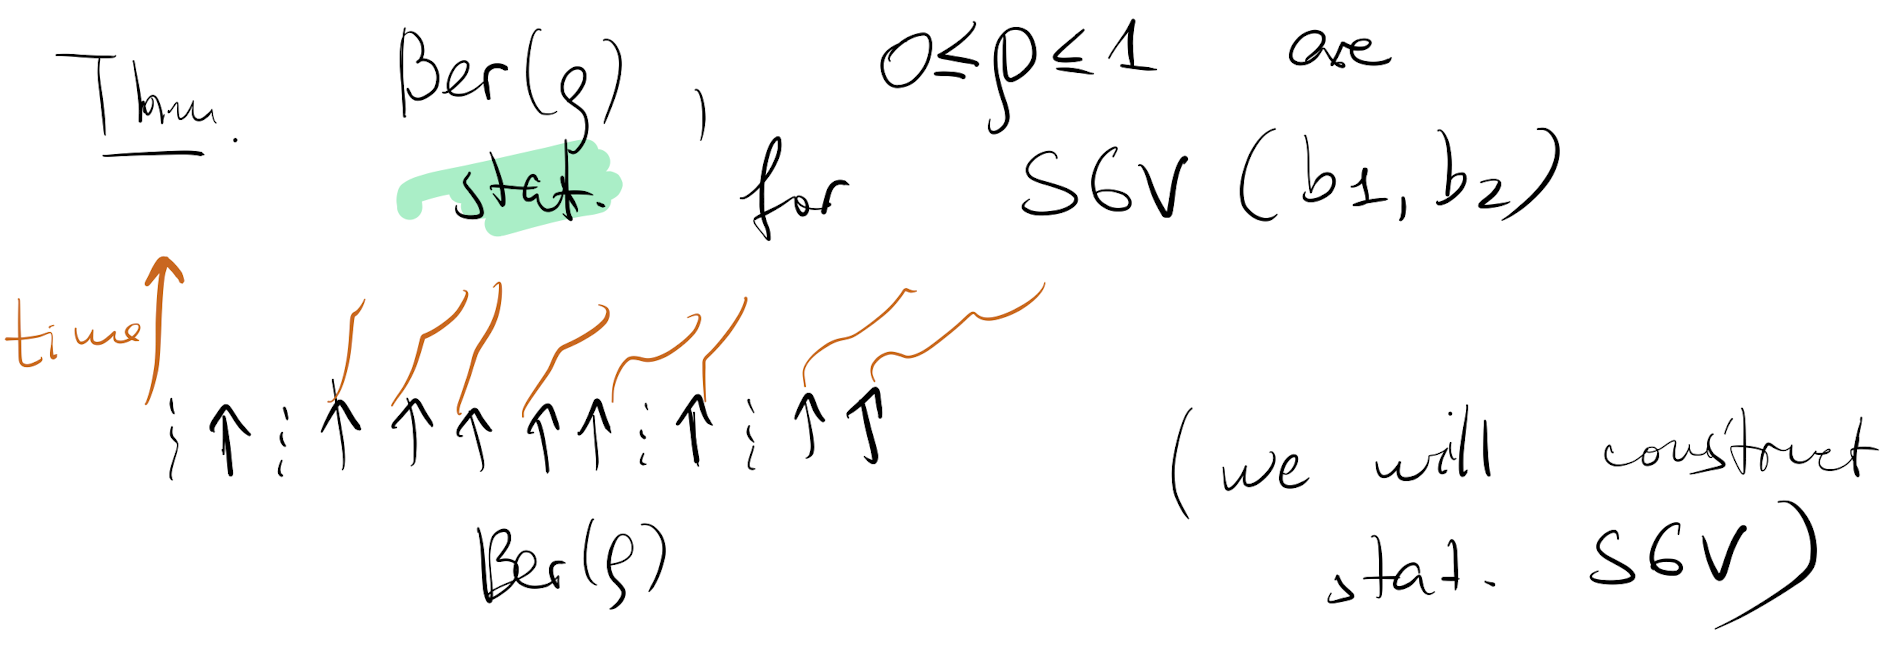 Thm. Ber(ρ), 0≤ρ≤1 are
stat. for S6V (b1, b2)
time
Ber(ρ)
(we will construct
stat. S6V)